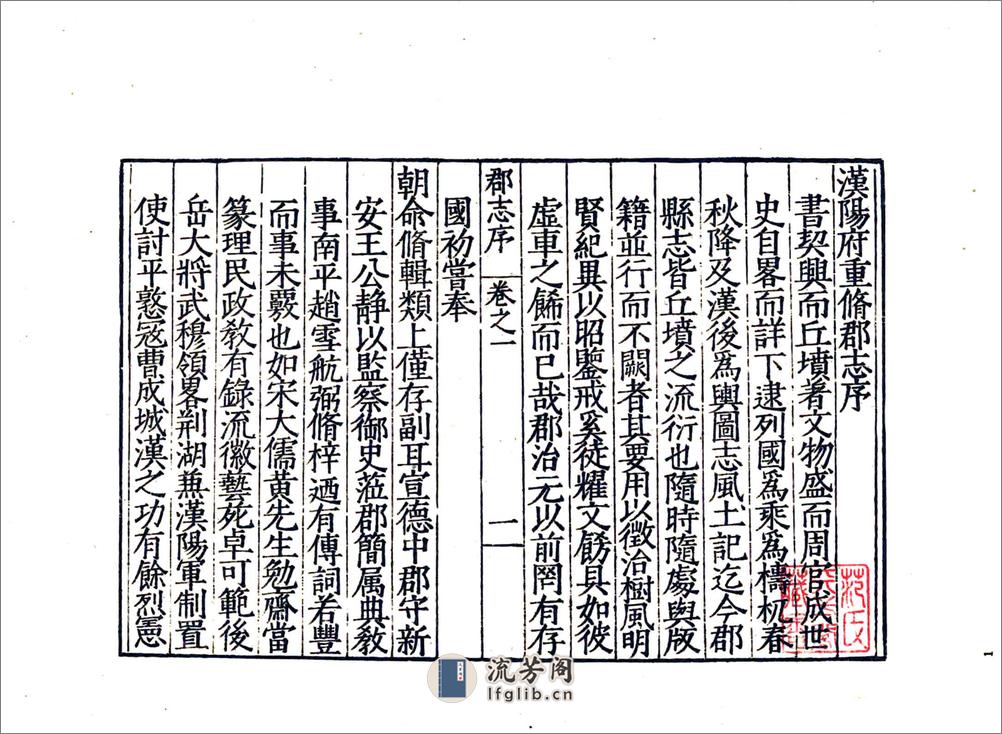 漢陽府重脩郡志序
書契興而丘墳著文物盛而周官成世
史自畧而詳下逮列國為乘為檮杌春
秋降及漢後為輿圖志風土記迄今郡
縣志皆丘墳之流衍也隨時隨處與版
籍並行而不闕者其要用以徵治樹風明
賢紀異以昭鑒戒奚徒耀文餙具如彼
虛車之餙而已哉郡治元以前罔有存
郡志序 卷之一 一
國初嘗奉
朝命脩輯類上僅存副耳宣德中郡守新
安王公靜以監察御史蒞郡簡属典敎
事南平趙雪航弼脩梓迺有傳詞若豐
而事未覈也如宋大儒黃先生勉齋當
篆理民政敎有錄流徽藝苑卓可範後
岳大將武穆領畧荆湖兼漢陽軍制置
使討平憝寇曹成城漢之功有餘烈憲
流芳阁
lfglib.cn
1